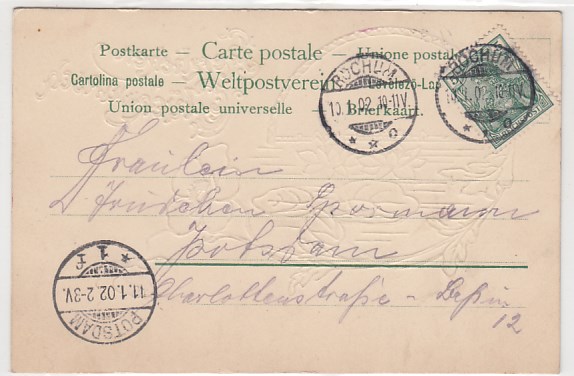 Postkarte — Carte postale — Unione postale
Cartolina postale — Weltpostverein — Levelező-Lap
Union postale universelle Briefkaart.
BOCHUM
10.1.02.10-11V.
* * c
BOCHUM
10.1.02.10-11V.
* * c
Fräulein
Trudchen
Potsdam
Charlottenstraße –
12
POTSDAM
11.1.02.2-3V.
* 1 F